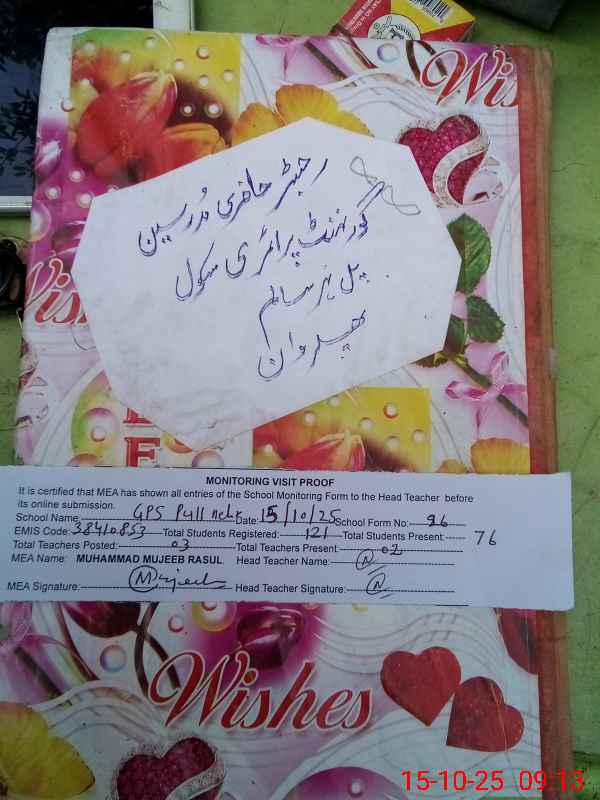 Wis
رجسٹر حاضری مدرسین
گورنمنٹ پرائمری سکول
پل نہر سالم
بھلوان
Wis
MONITORING VISIT PROOF
It is certified that MEA has shown all entries of the School Monitoring Form to the Head Teacher before
its online submission.
School Name: GPS Pull nehr Date: 15/10/25 School Form No: 26
EMIS Code: 38410853 Total Students Registered: 121 Total Students Present: 76
Total Teachers Posted: 03 Total Teachers Present: 02
MEA Name: MUHAMMAD MUJEEB RASUL Head Teacher Name:
MEA Signature: Mujeeb Head Teacher Signature:
Wishes
15-10-25 09:13